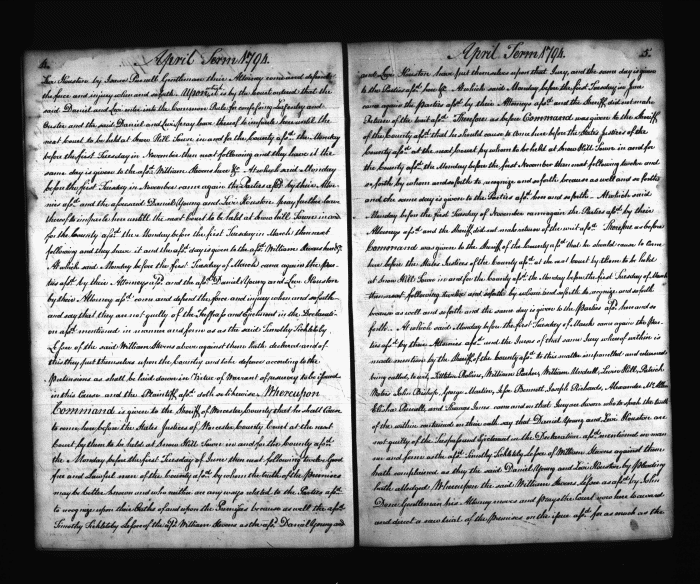 4.
April Term 1794.
Levi Houston by James Purnell Gentleman their Attorney come and defend
the force and injury when and so forth Upon it is by the Court ordered that the
said David and Levi enter into the Common Rule for confessing Lease Entry and
Ouster and the said Daniel and Levi pray leave thereof to imparle here untill the
next Court to be held at Snow Hill Town in and for the County afst. the Monday
before the first Tuesday in November then next following and they have it the
same day is given to the afst. William Stevens here &c. At which said Monday
before the first Tuesday in November came again the Parties afst. by their Attor-
nies afst. and the aforesaid Daniel Young and Levi Houston pray further leave
thereof to imparle here untill the next Court to be held at Snow hill Town in and
for the County afst. the Monday before the first Tuesday in March then next
following and they have it and the afst. day is given to the afst. William Stevens here &c.
At which said Monday before the first Tuesday of March came again the Par-
ties afst. by their Attornies afst. and the afst. Daniel Young and Levi Houston
by their Attorney afst. come and defend the force and injury when and so forth
and say that they are not guilty of the Trespass and Ejectment in the Declarati-
on afst. mentioned in manner and form as the said Timothy
Lessee of the said William Stevens above against them hath declared and of
this they put themselves upon the Country and take defence according to the
Pretensions as shall be laid down in Virtue of Warrant of resurvey to be issued
in this Cause and the Plaintiff afst. doth so likewise. Whereupon
Command is given to the Sheriff of Worcester County that he shall Cause
to come here before the States Justices of Worcester County Court at the next
Court by them to be held at Snow Hill Town in and for the County afst.
the Monday before the first Tuesday of June then next following twelve Good
free and Lawful men of the County afst. by whom the truth of the Premises
may be better known and who neither are any ways related to the Parties afst.
to recognize upon their Oaths of and upon the Premises because as well the afst.
Timothy Lessee of the afst. William Stevens as the afst. Daniel Young and
April Term 1794.
5.
and Levi Houston have put themselves upon that Jury, and the same day is given
to the Parties afst. here &c. At which said Monday before the first Tuesday in June
came again the parties afst. by their Attorneys afst. and the Sheriff did not make
Return of the writ afst. Therefore as before Command was given to the Sheriff
of the County afst. that he should cause to Come here before the States Justices of
the County afst. at the next Court by whom to be held at Snow Hill Town in and for
the County afst. the Monday before the first November then next following twelve and
so forth by whom and so forth to recognize and so forth because as well and so forth
and the same day is given to the Parties afst. here and so forth. At which said
Monday before the first Tuesday of November came again the Parties afst. by their
Attorneys afst. and the Sheriff did not make return of the writ afst. Therefore as before
Command was given to the Sheriff of the County afst. that he should cause to Come
here before the States Justices of the County afst. at the next Court by them to be held
at Snow Hill Town in and for the County afst. the Monday before the first Tuesday of March
then next following twelve and so forth by whom and so forth to recognize and so forth
because as well and so forth and the same day is given to the Parties afst. here and so
forth. At which said Monday before the first Tuesday of March came again the Par-
ties afst. by their Attornies afst. and the Jurors of that same Jury whereof within is
made mention by the Sheriff of the County afst. to this matter impannelled and returned
being called, to wit, Littleton Robins, William Parker, William Marshall, Levin Hill, Patrick
Waters John Bishop, George Martin, John Bennett, Joseph Richards, Alexander
Elisha Purnell, and Zadock Jones came and on that Jury are sworn who to speak the truth
of the within contained on their oath say that Daniel Young and Levi Houston are
not guilty of the Trespass and Ejectment in the Declaration afst. mentioned in man-
ner and form as the afst. Timothy Lessee of William Stevens against them
hath complained as they the said Daniel Young and Levi Houston by Pleading
hath alledged. Whereupon the said William Stevens Lessee as afst. by John
Done Gentleman his Attorney moves and Prays the Court now here to award
and direct a new trial of the Premises on the issue afst. for as much as the